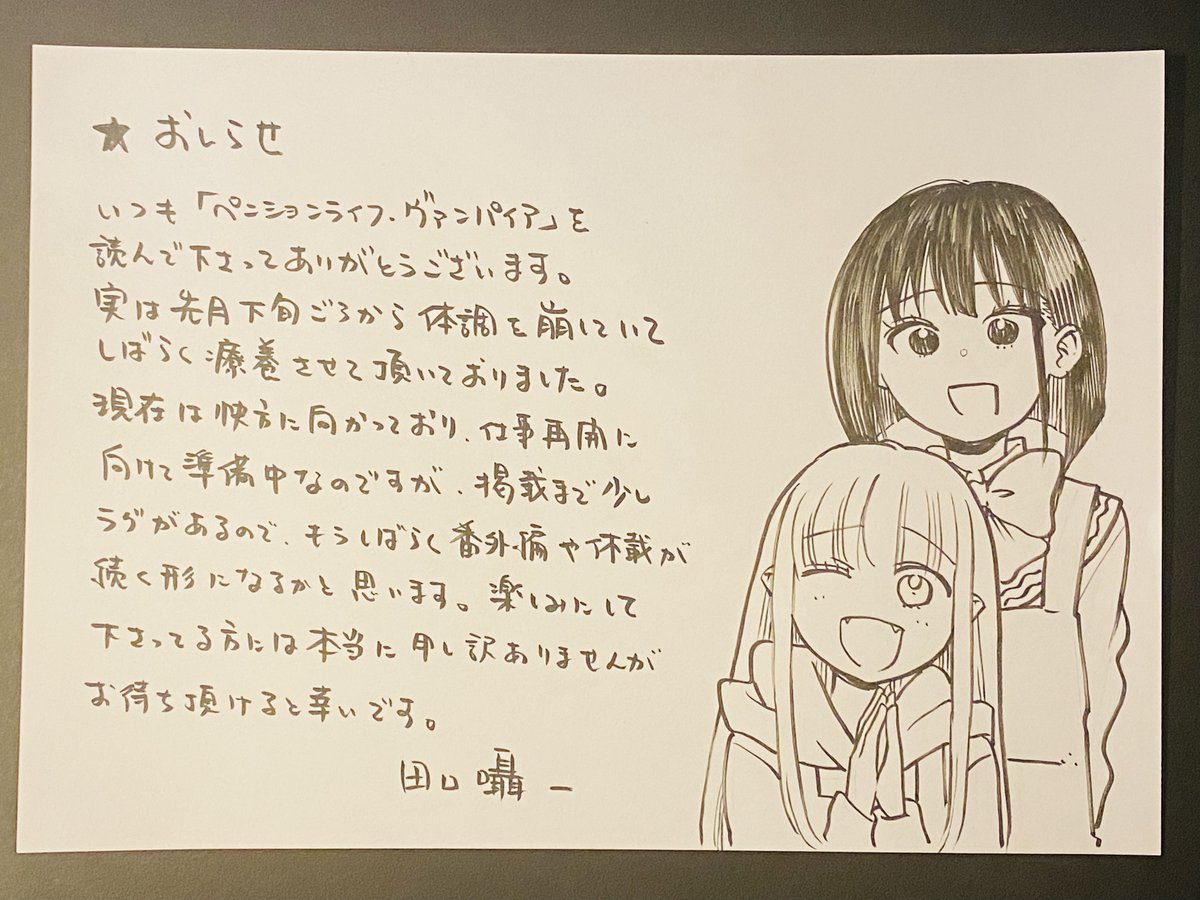 ★ おしらせ
いつも「ペンションライフ・ヴァンパイア」を
読んで下さってありがとうございます。
実は先月下旬ごろから体調を崩していて
しばらく療養させて頂いておりました。
現在は快方に向かっており、仕事再開に
向けて準備中なのですが、掲載まで少し
ラグがあるので、もうしばらく番外編や休載が
続く形になるかと思います。楽しみにして
下さってる方には本当に申し訳ありませんが
お待ち頂けると幸いです。
田口囁一